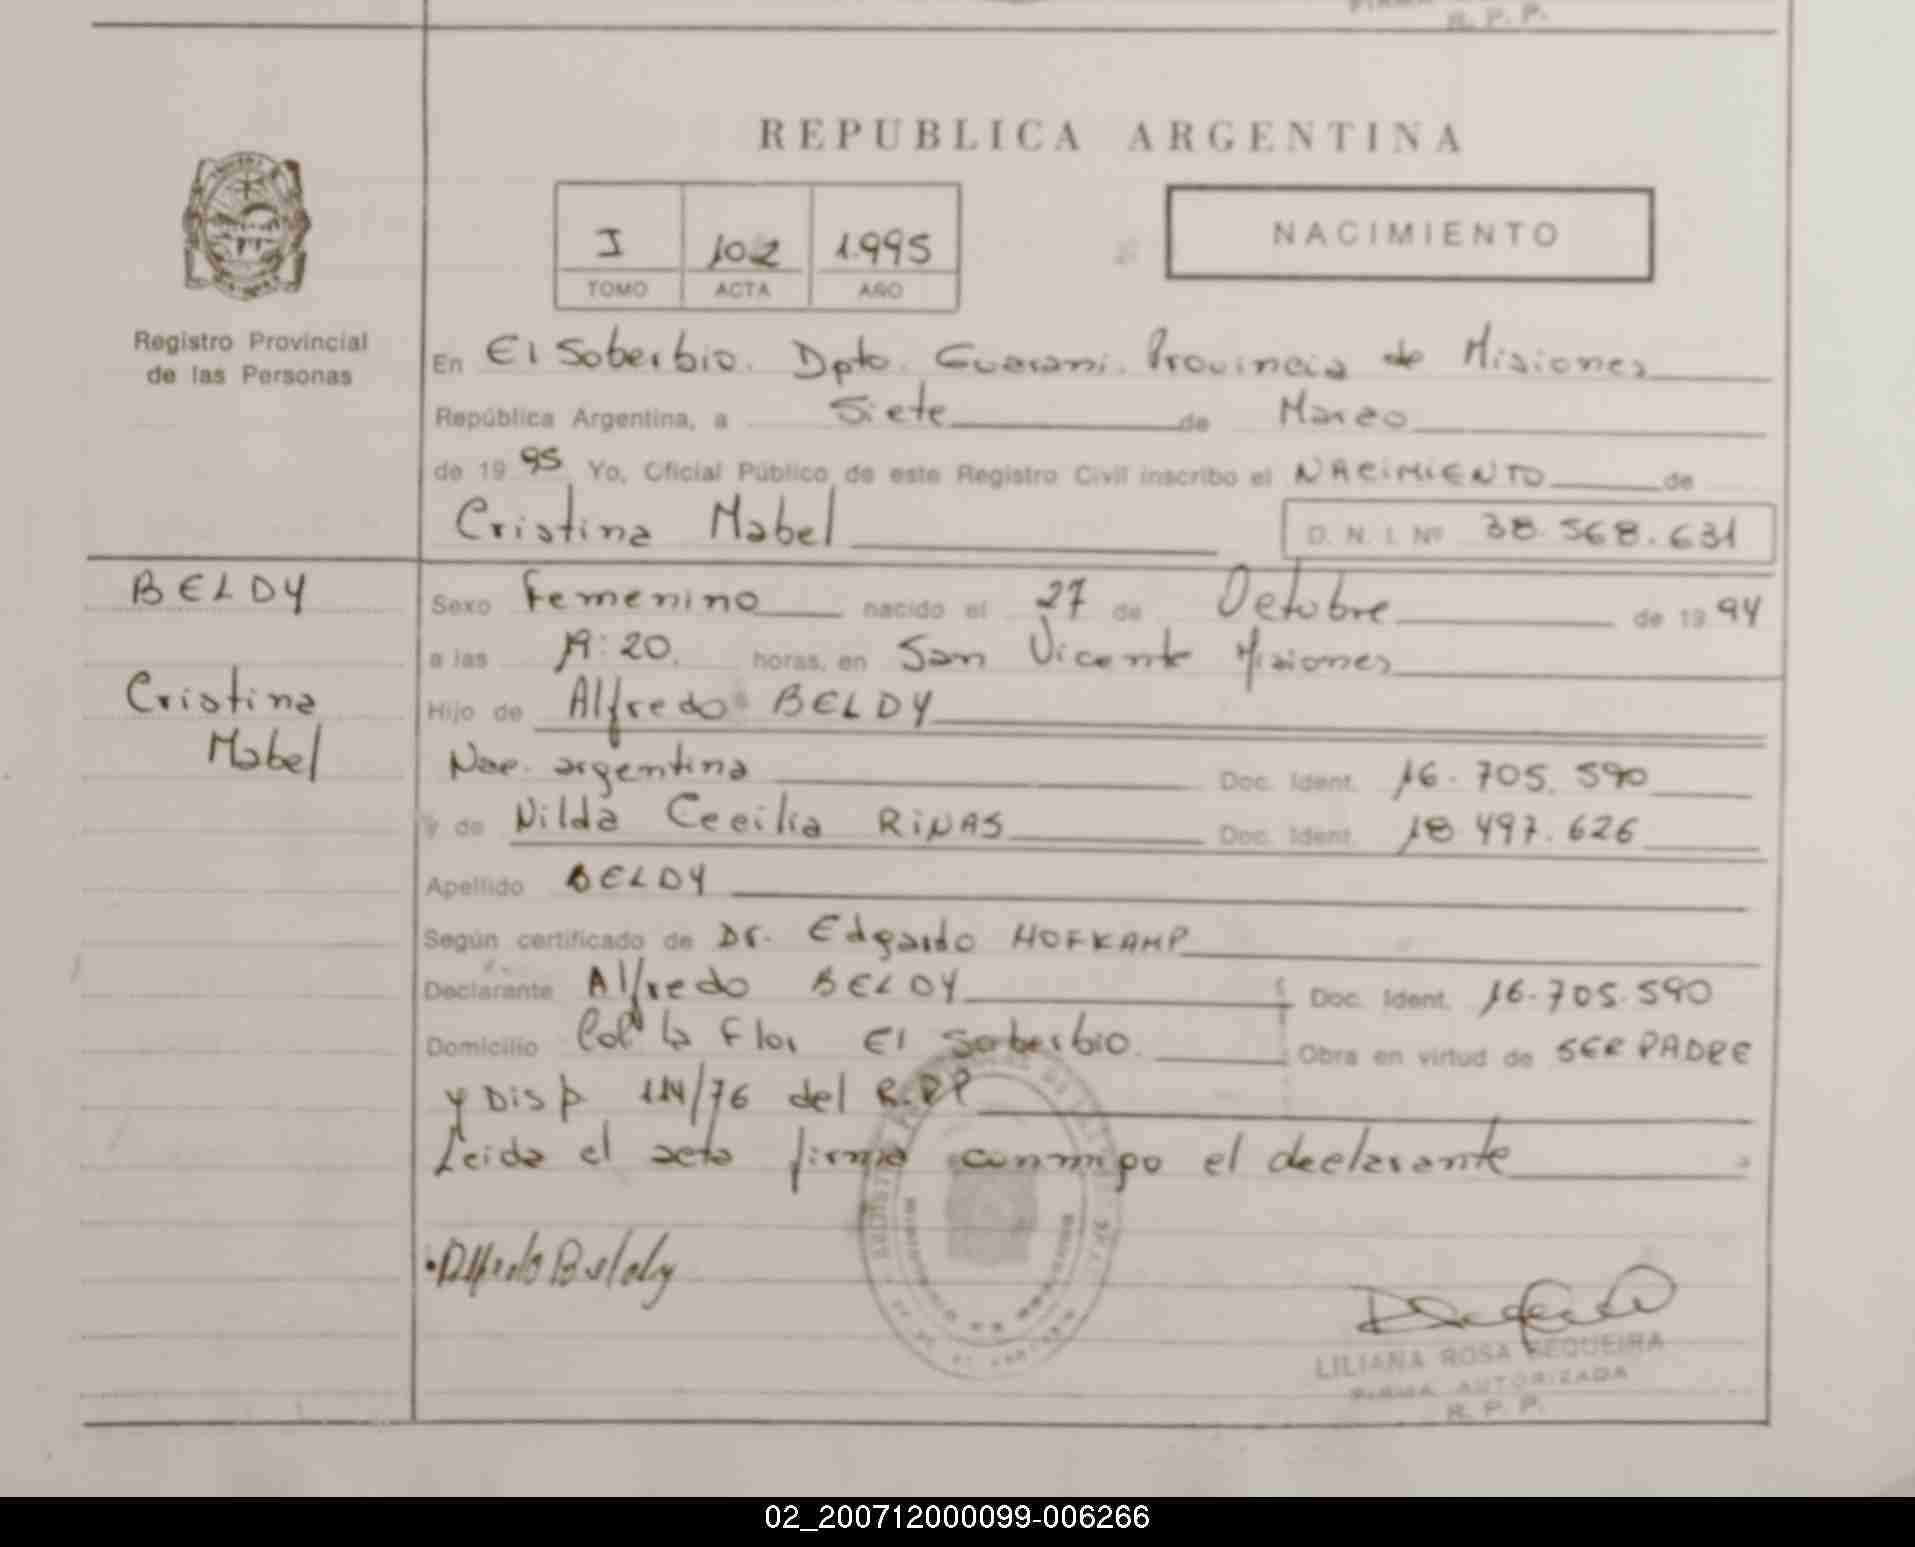 R. P. P.
REPUBLICA ARGENTINA
I 102 1.995
TOMO ACTA AÑO
NACIMIENTO
Registro Provincial
de las Personas
En El Soberbio. Dpto. Guarani. Provincia de Misiones
República Argentina, a Siete de Marzo
de 19 95 Yo, Oficial Público de este Registro Civil inscribo el NACIMIENTO de
Cristina Mabel D. N. I. Nº 38.568.631
BELDY
Cristina
Mabel
Sexo Femenino nacido el 27 de Octubre de 19 94
a las 19:20. horas, en San Vicente Misiones
Hijo de Alfredo BELDY
Nac. argentina Doc. Ident. 16.705.590
y de Nilda Cecilia RiNAS Doc. Ident. 18 497.626
Apellido BELDY
Según certificado de Dr. Edgardo HOFKAMP
Declarante Alfredo BELDY Doc. Ident. 16.705.590
Domicilio Colª la Flor El Soberbio. Obra en virtud de SER PADRE
y Disp 114/76 del R.P.P
Leida el acta firma conmigo el declarante
Alfredo Beldy
LILIANA ROSA SEQUEIRA
FIRMA AUTORIZADA
R. P. P.
02_200712000099-006266